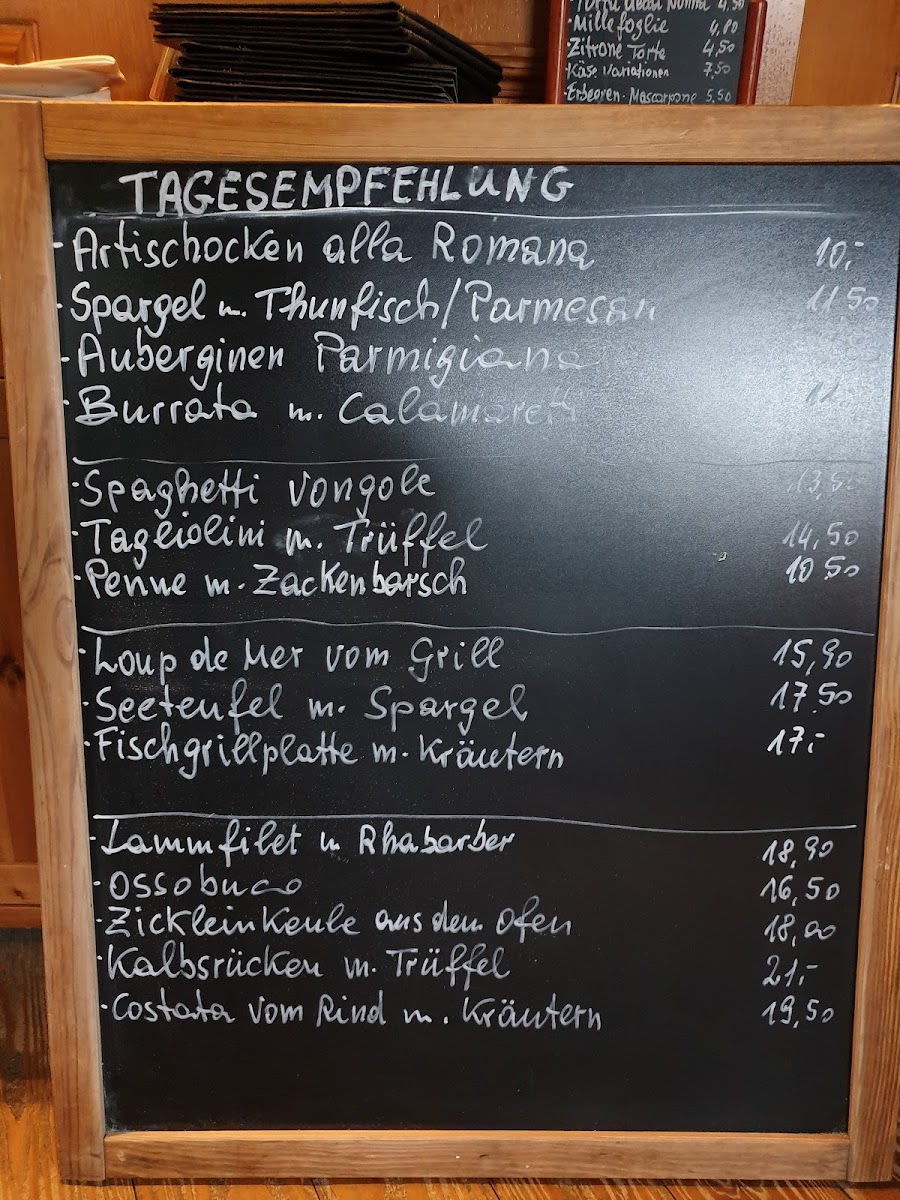 Torta della Nonna 4,50
·Millefoglie 4,80
·Zitrone Torte 4,50
·Käse Variationen 7,50
·Erbeeren-Mascarpone 5,50
TAGESEMPFEHLUNG
-Artischocken alla Romana 10,-
·Spargel m. Thunfisch/Parmesan 11 50
-Auberginen Parmigiana
·Burrata m. Calamaretti
·Spaghetti Vongole 13,50
·Tagliolini m. Trüffel 14,50
·Penne m. Zackenbarsch 10 50
·Loup de Mer vom Grill 15,90
·Seeteufel m. Spargel 17 50
·Fischgrillplatte m. Kräutern 17,-
·Lammfilet m Rhabarber 18,90
·Ossobuco 16,50
·Zickleinkeule aus dem Ofen 18,00
·Kalbsrücken m. Trüffel 21,-
·Costata vom Rind m. Kräutern 19,50